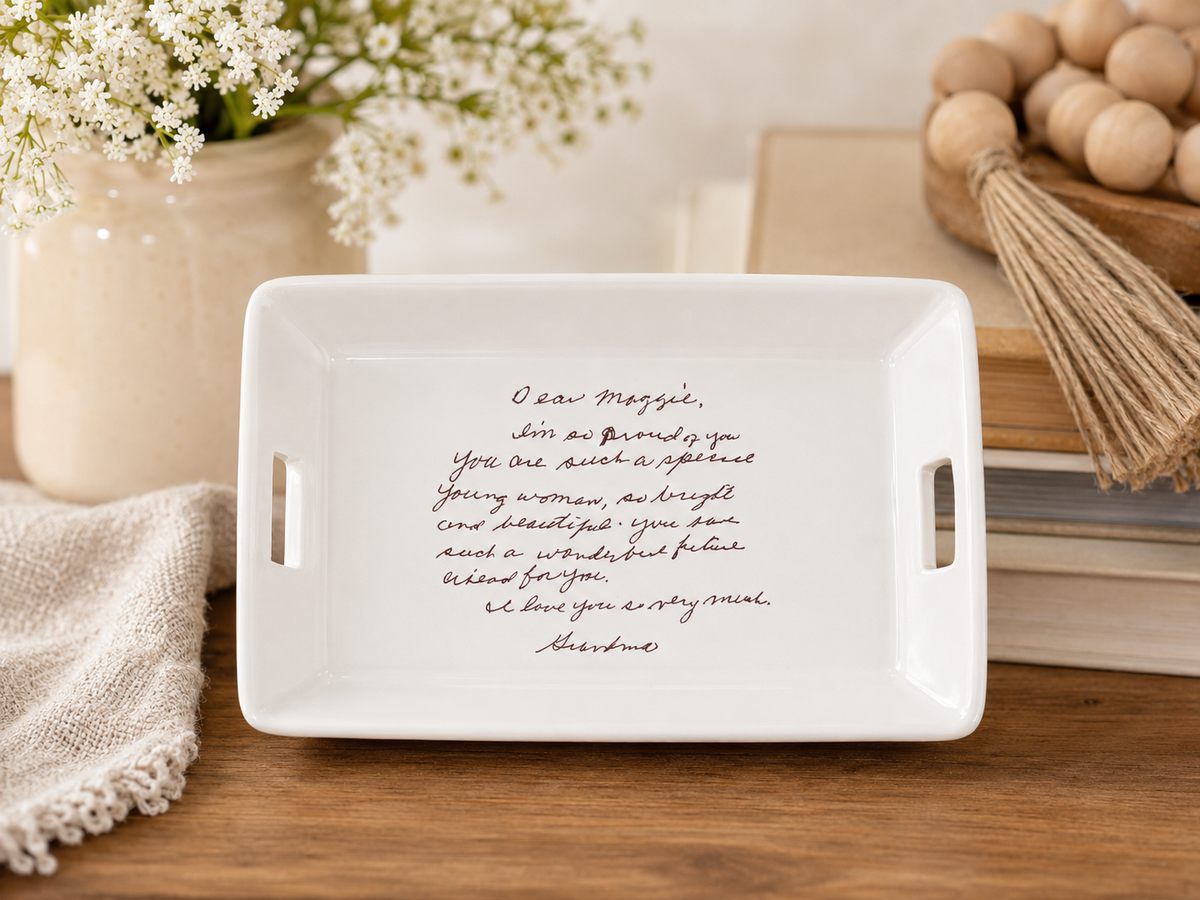 Dear Maggie,
I'm so proud of you
You are such a special
young woman, so bright
and beautiful. you have
such a wonderful future
ahead for you.
I love you so very much.
Grandma